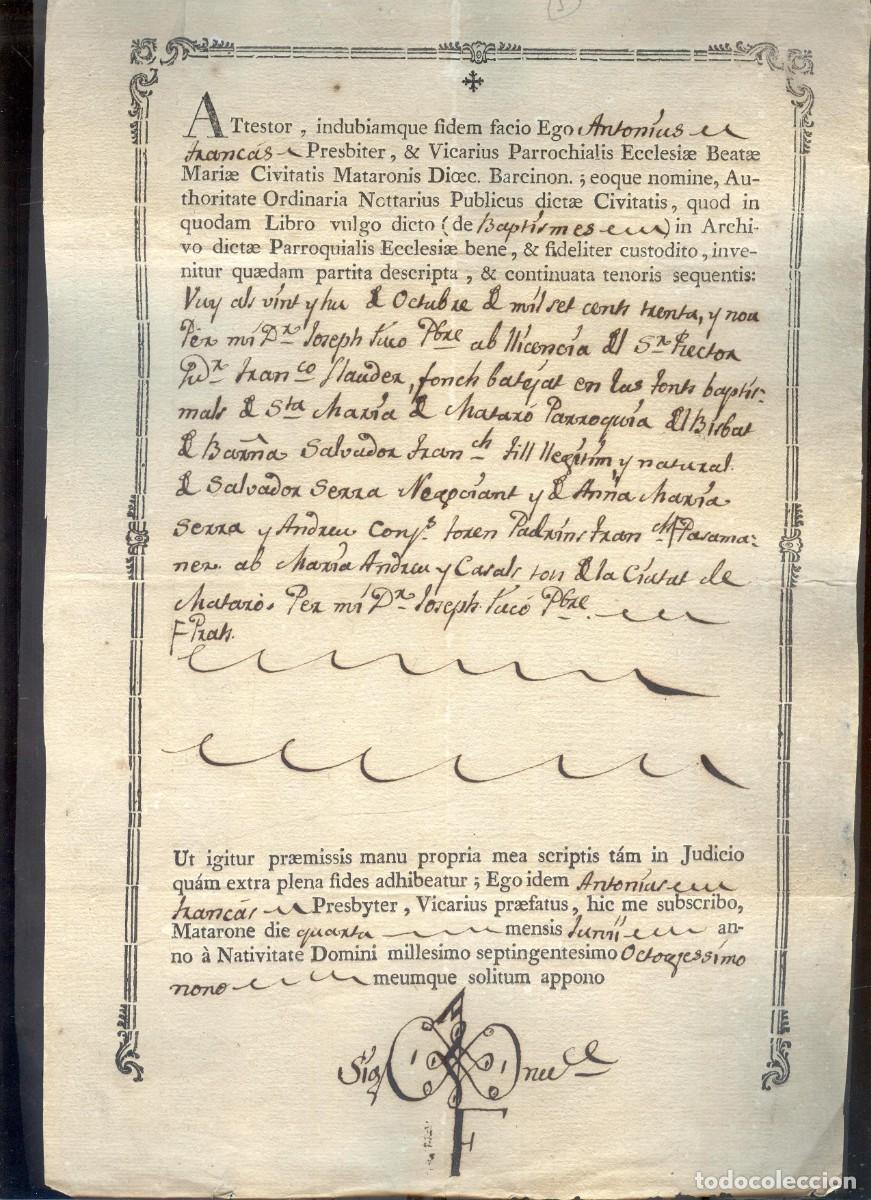 ATtestor, indubiamque fidem facio Ego Antonius
francás Presbiter, & Vicarius Parrochialis Ecclesiæ Beatæ
Mariæ Civitatis Mataronis Diœc. Barcinon.; eoque nomine, Au-
thoritate Ordinaria Nottarius Publicus dictæ Civitatis, quod in
quodam Libro vulgo dicto (de Baptismes) in Archi-
vo dictæ Parroquialis Ecclesiæ bene, & fideliter custodito, inve-
nitur quædam partita descripta, & continuata tenoris sequentis:
Vuy als vint y hu de Octubre de mil set cents trenta, y nou
Per mi Dr. Joseph Pbre ab llicencia del Sr. Rector
Dr. Franco Llauder, fonch batejat en las fonts baptis-
mals de Sta Maria de Mataró Parroquia del Bisbat
de Barña Salvador Franch fill llegitim, y natural
de Salvador Serra Negociant y de Anña Maria
Serra y Andreu Conjs. foren Padrins Franch Pasama-
ner ab Maria Andreu y Casals tots de la Ciutat de
Mataró. Per mi Dr. Joseph Pbre.
Ut igitur præmissis manu propria mea scriptis tám in Judicio
quám extra plena fides adhibeatur; Ego idem Antonius
francás Presbyter, Vicarius præfatus, hic me subscribo,
Matarone die quarta mensis Junii an-
no à Nativitate Domini millesimo septingentesimo Octogessimo
nono meumque solitum appono
Sig num
todocoleccion